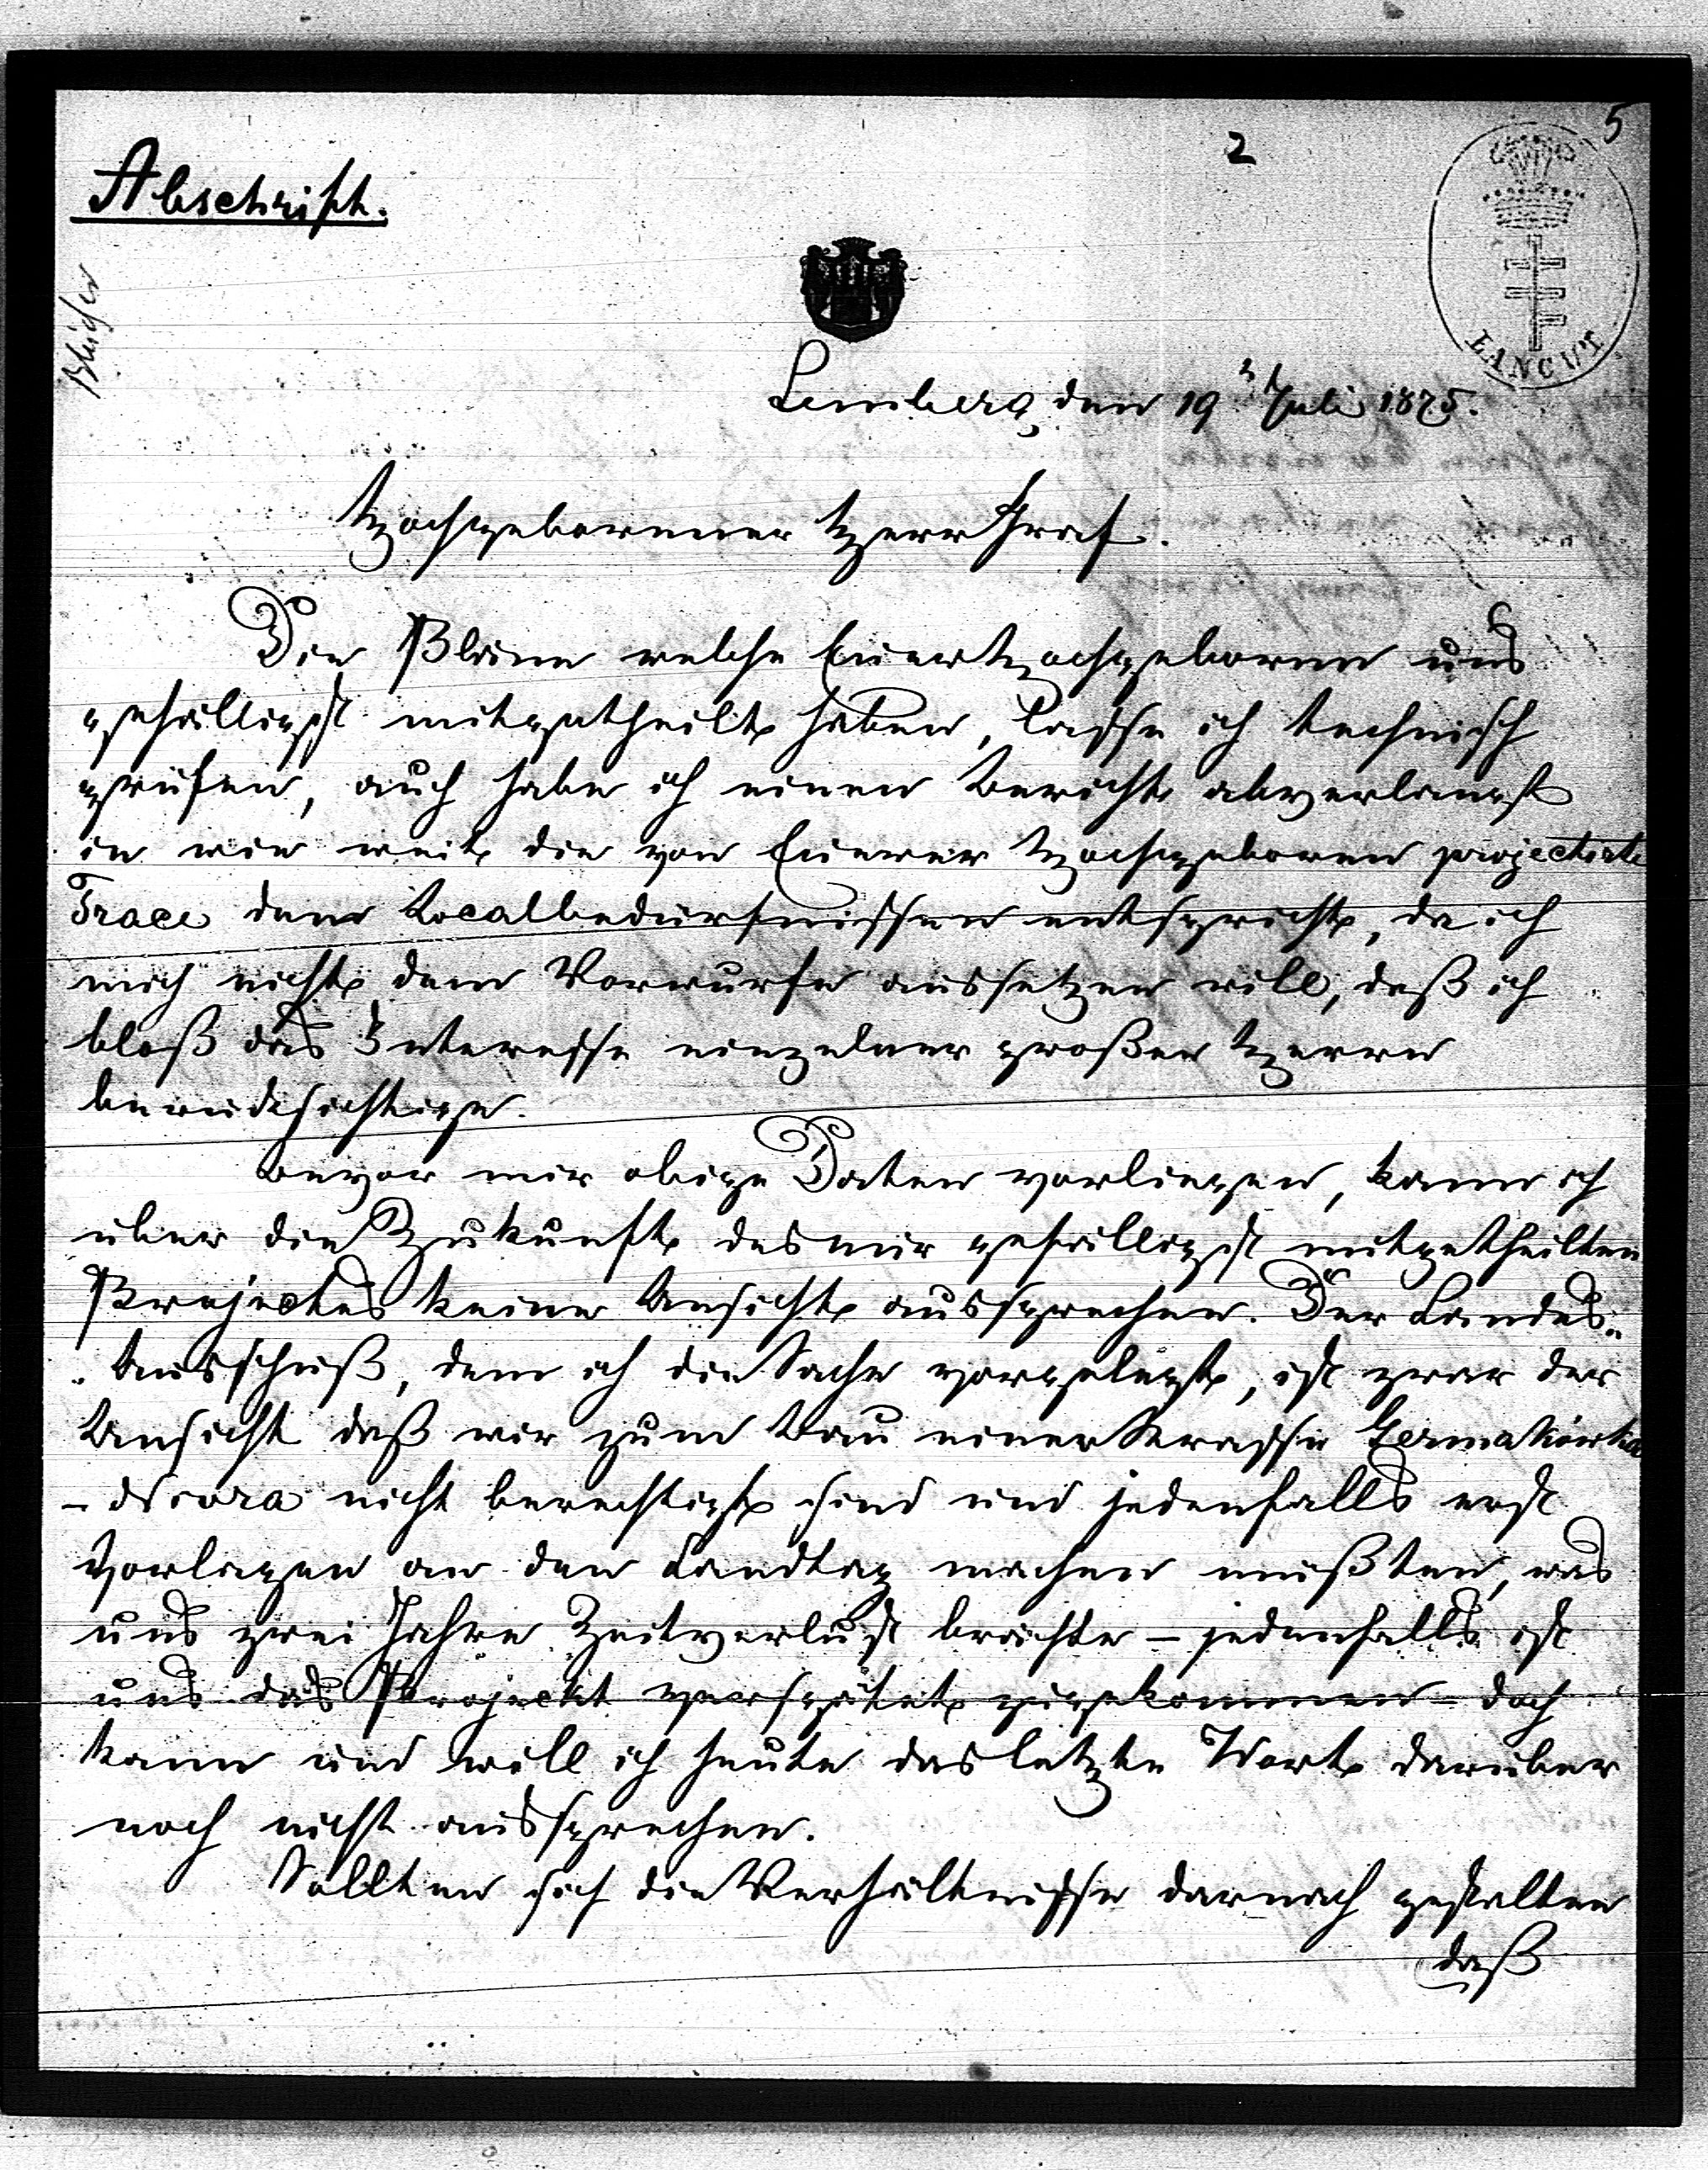 5
2
Abschrift.
ŁAŃCUT
Lemberg, den 19t Juli 1875.
Hochgeborener Herr Graf.
Die Pläne welche Euer Hochgeboren uns
gefälligst mitgetheilt haben, lasse ich technisch
prüfen, auch habe ich einen Bericht abverlangt
in wie weit die von Euerer Hochgeboren projectirte
Trace den Localbedürfnissen entspricht, da ich
mich nicht dem Vorwurfe aussetzen will, daß ich
bloß das Interesse einzelner großer Herrn
berücksichtige.
Bevor mir obige Daten vorliegen, kann ich
über die Zukunft des mir gefälligst mitgetheilten
Projectes keine Ansicht aussprechen. Der Landes-
-Ausschuß, dem ich die Sache vorgelegt, ist zwar der
Ansicht daß wir zum Bau einer Strasse Germakówka
- Niwra nicht berechtigt sind und jedenfalls erst
Vorlagen an den Landtag machen müßten, was
uns zwei Jahre Zeitverlust brächte – jedenfalls ist
uns das Projekt verspätet zugekommen – doch
kann und will ich heute das letzte Wort darüber
noch nicht aussprechen.
Sollten sich die Verhältnisse darnach gestalten
daß